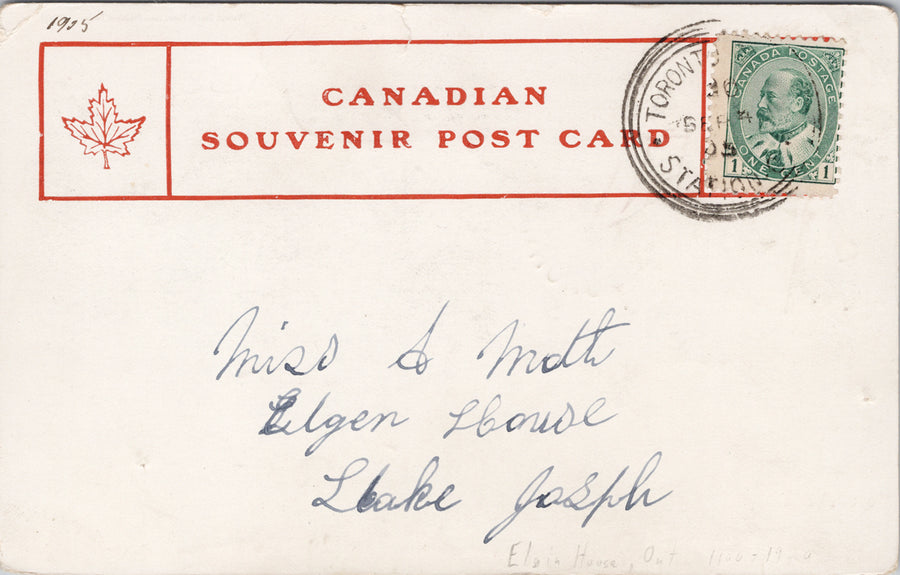 1905
CANADIAN
SOUVENIR POST CARD
TORONTO
30
SEP 4
05
STATION
CANADA POSTAGE
1 ONE CENT 1
Miss A Moth
Elgen House
Lake Joseph
Elgin House, Ont